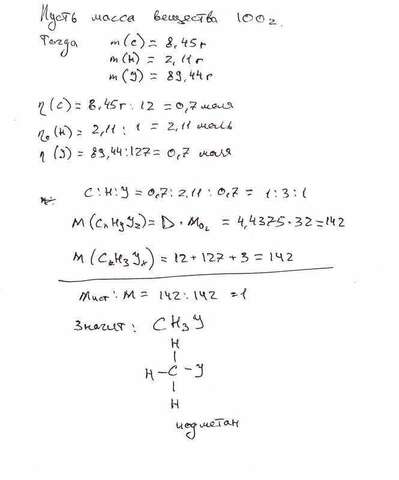 Пусть масса вещества 100г.
Тогда m(C) = 8,45г
m(H) = 2,11г
m(J) = 89,44г
η(C) = 8,45г : 12 = 0,7 моля
η(H) = 2,11 : 1 = 2,11 моль
η(J) = 89,44:127 = 0,7 моля
C:H:J = 0,7:2,11:0,7 = 1:3:1
M(CxHyJz) = D · MO₂ = 4,4375·32=142
M(CxH3Jx) = 12+127+3 = 142
Mист : M = 142:142 = 1
Значит: CH3J
H
H-C-J
H
иодметан